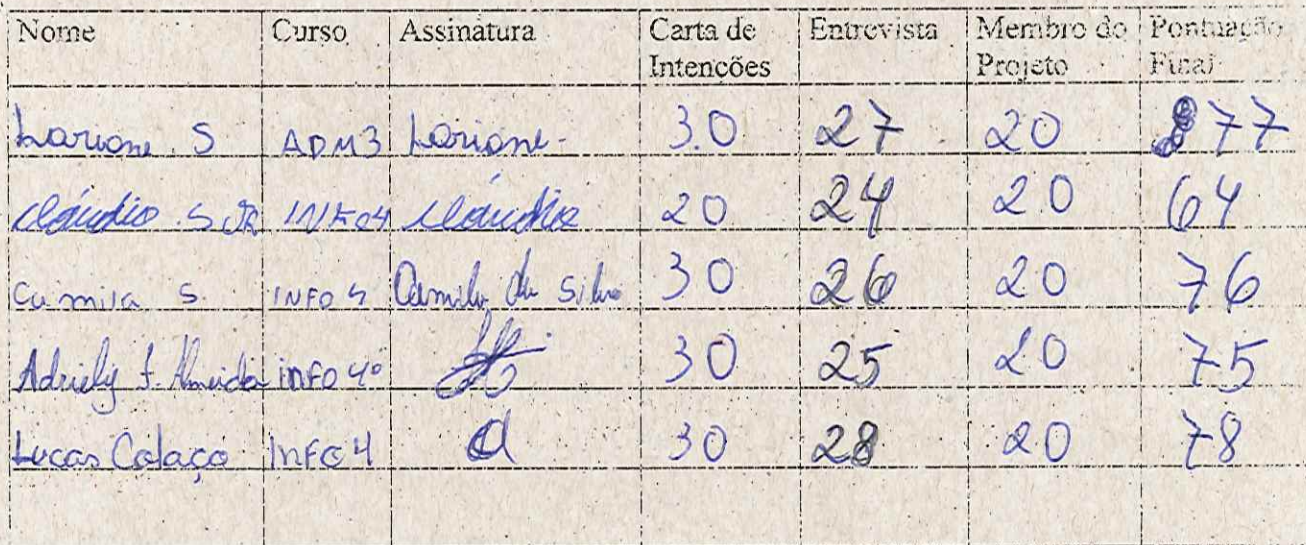 Nome Curso Assinatura Carta de Intenções Entrevista Membro do Projeto Pontuação Final
Lariane S ADM3 Lariane 30 27 20 77
Cláudio S JR INFO4 Cláudio 20 24 20 64
Camila S. INFO 4 Camila da Silva 30 26 20 76
Adriely F. Almeida INFO 4º 30 25 20 75
Lucas Colaço INFO 4 30 28 20 78